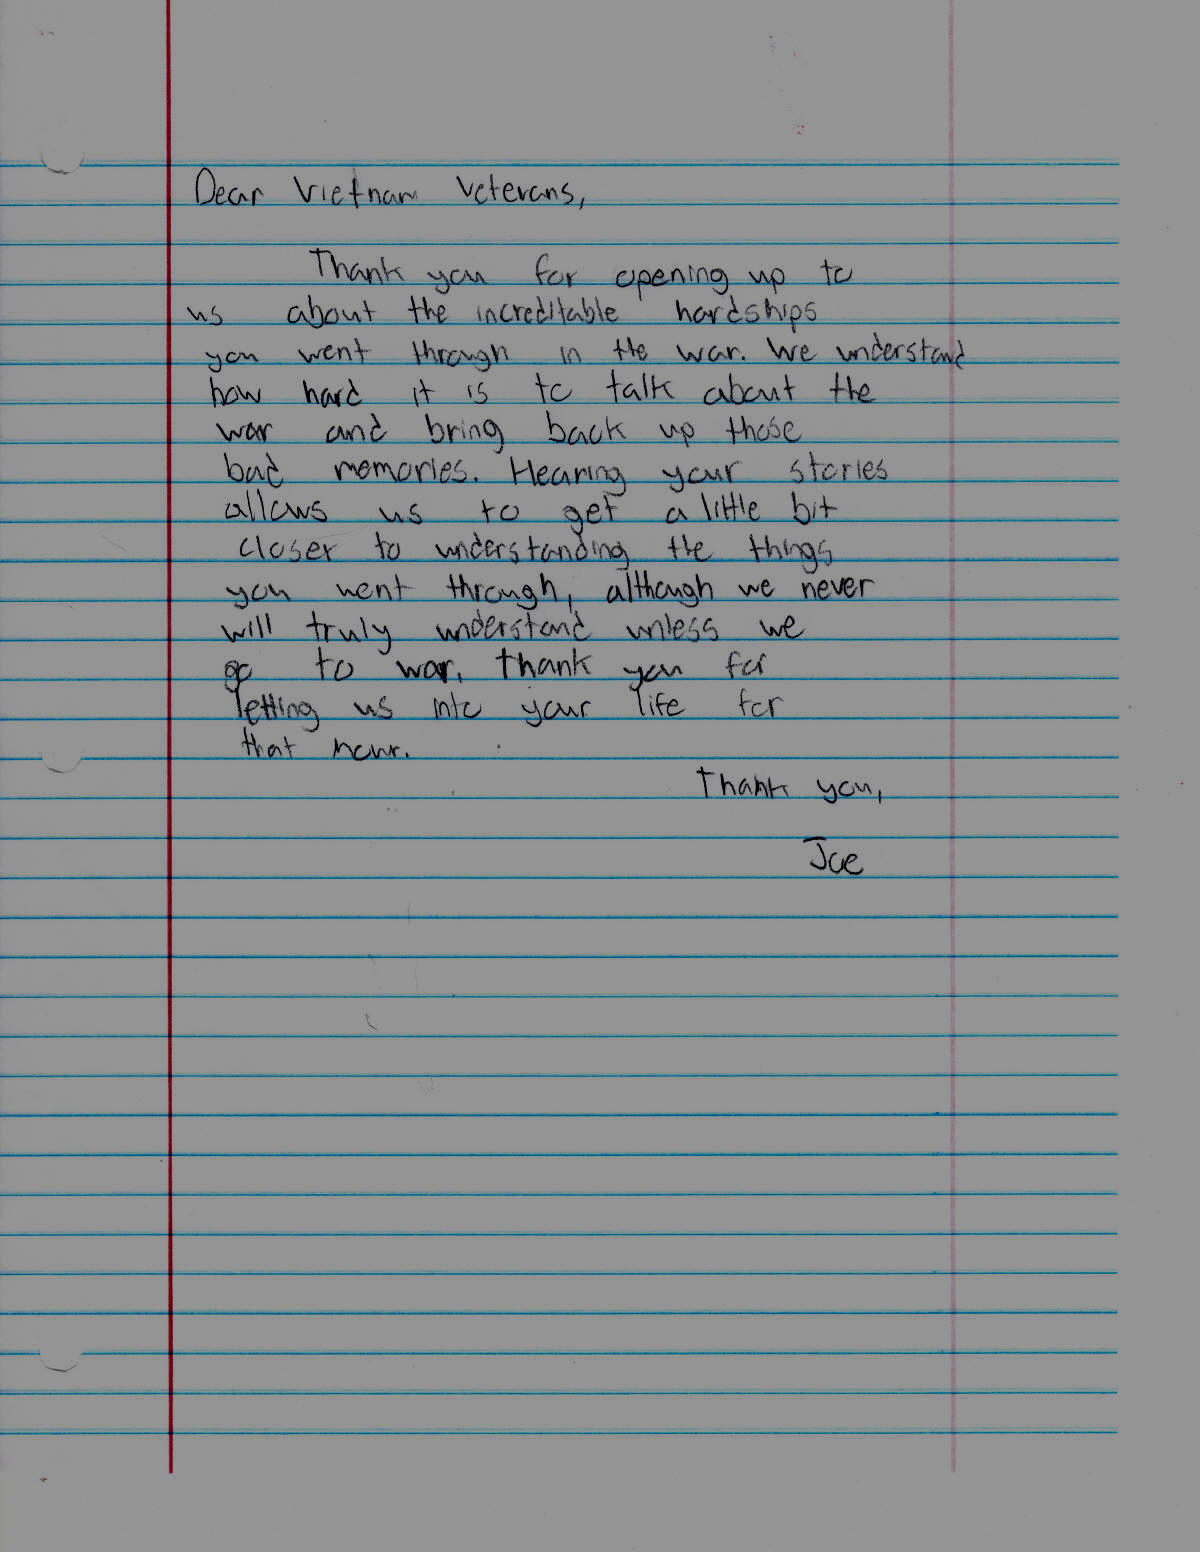 Dear Vietnam Veterans,
Thank you for opening up to
us about the increditable hardships
you went through in the war. We understand
how hard it is to talk about the
war and bring back up those
bad memories. Hearing your stories
allows us to get a little bit
closer to understanding the things
you went through, although we never
will truly understand unless we
go to war. Thank you for
letting us into your life for
that hour.
Thank you,
Joe